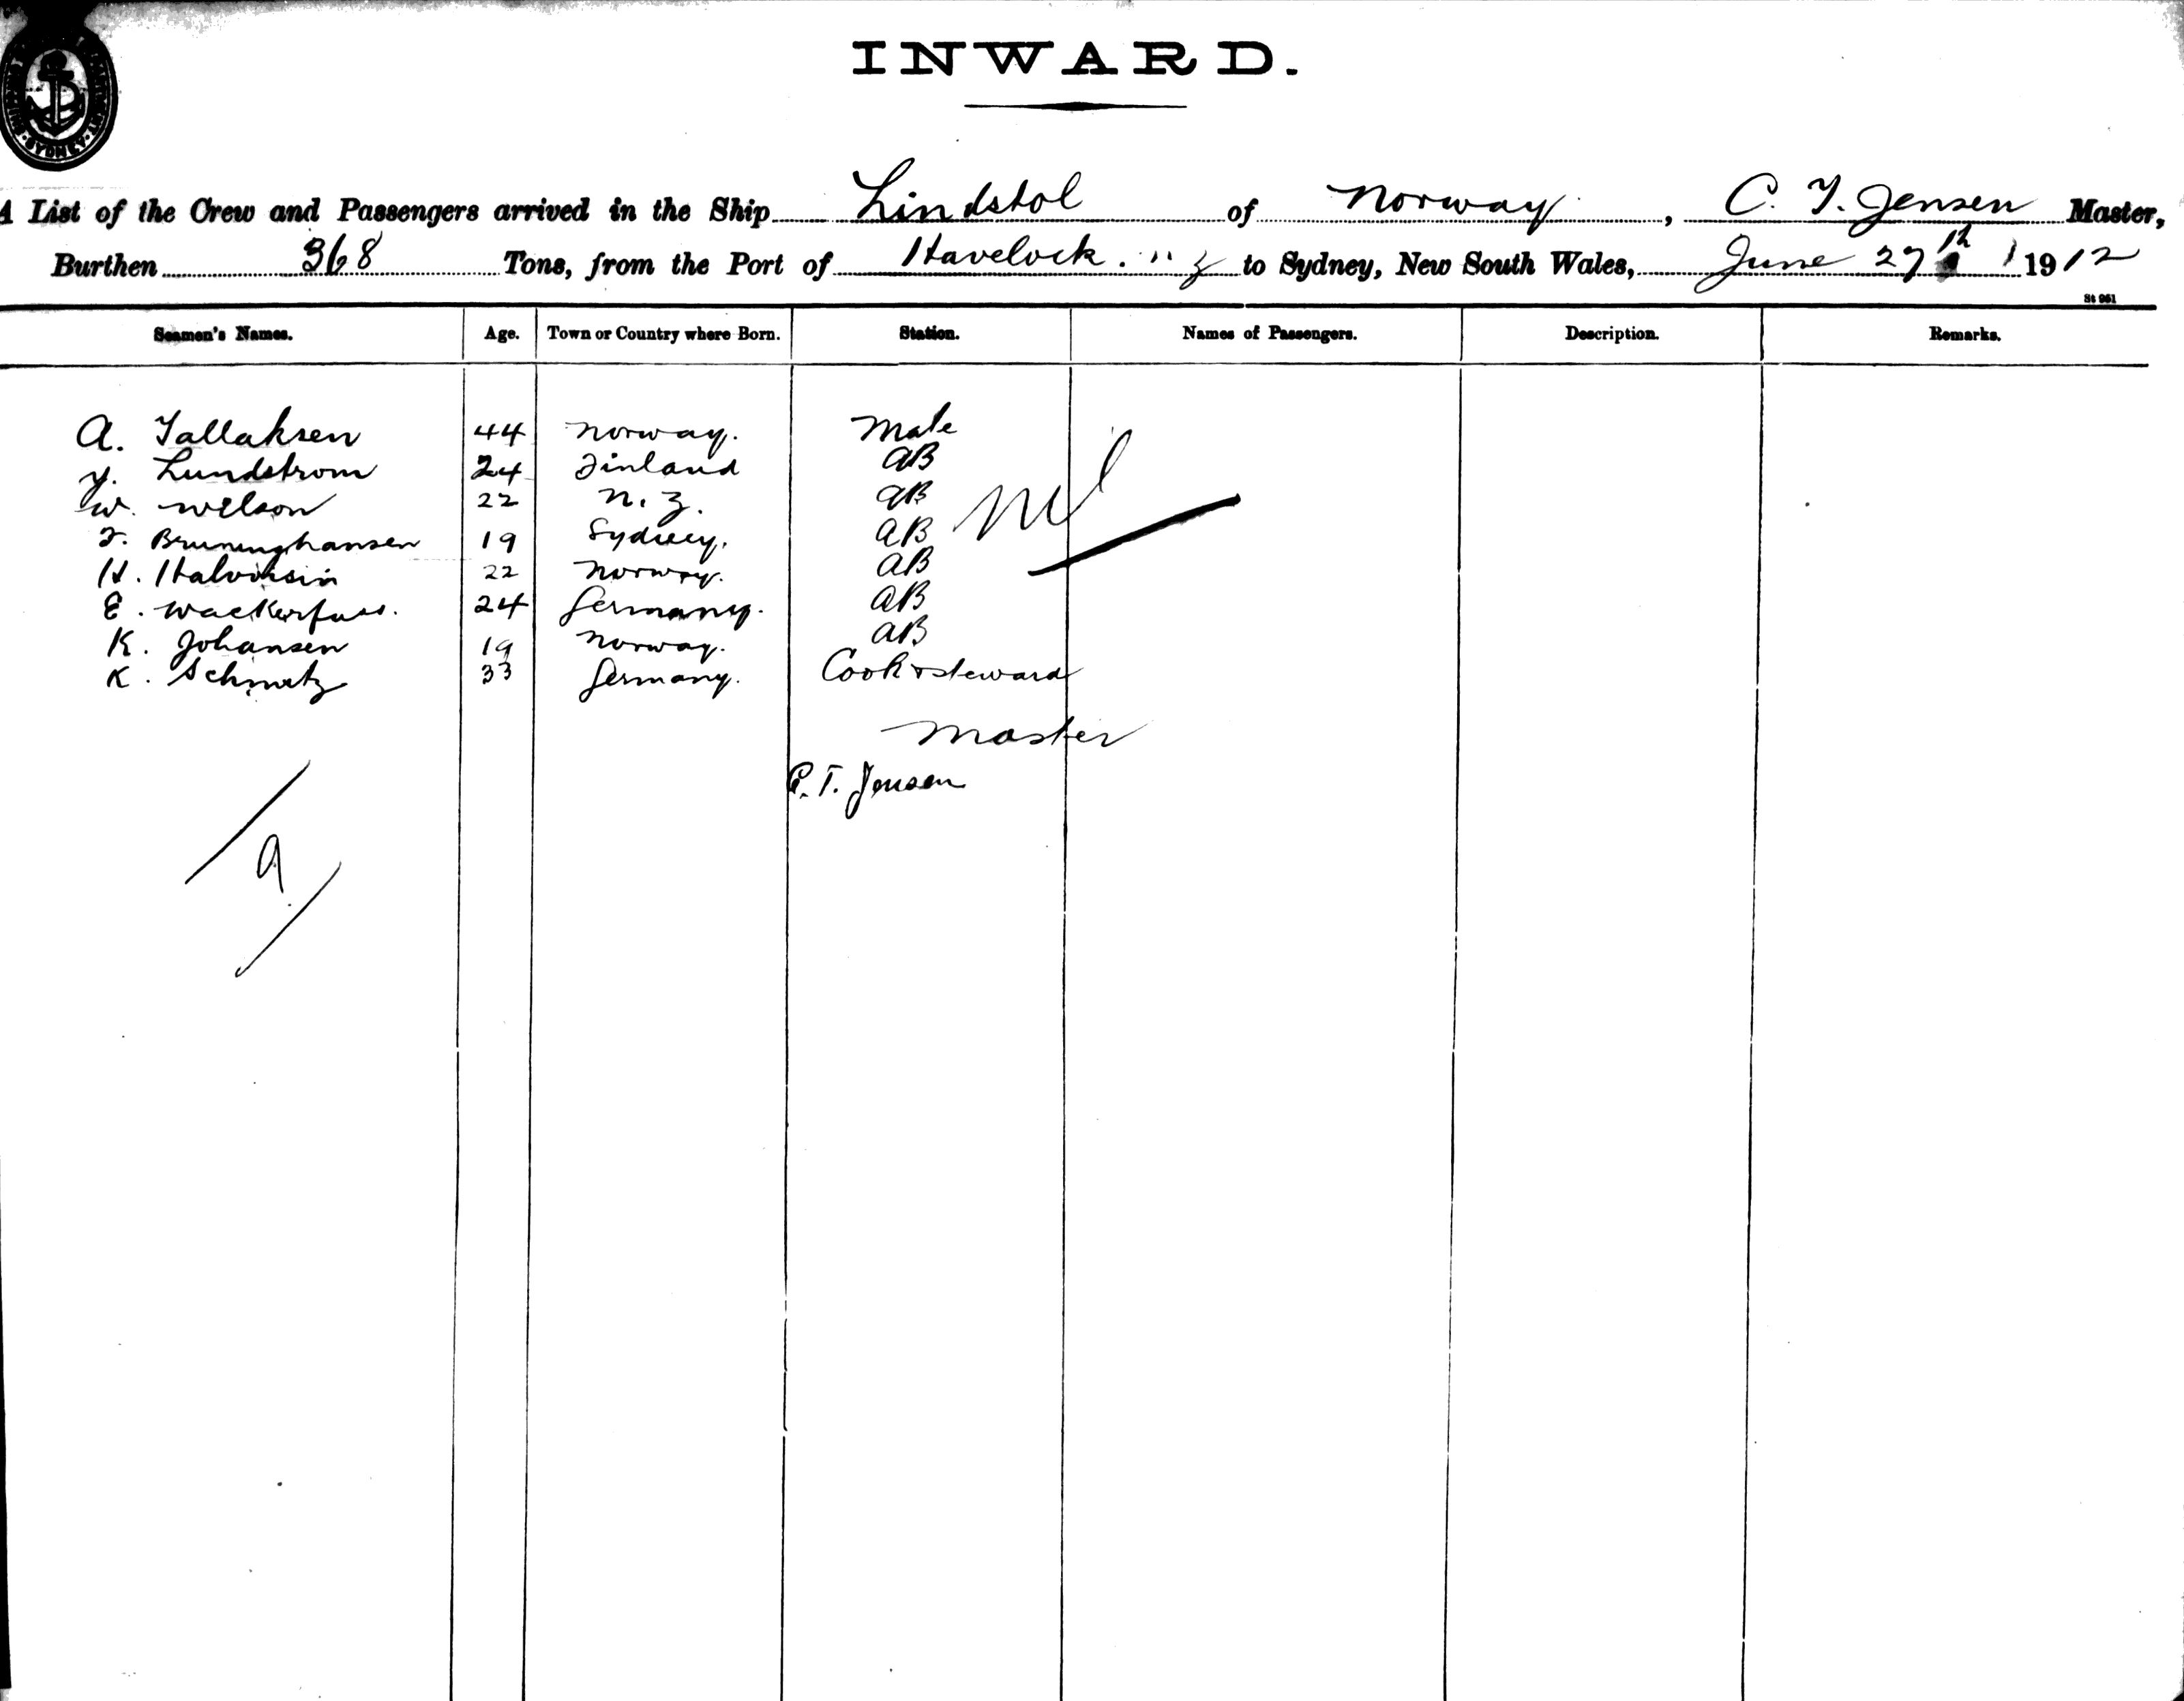 INWARD.
SYDNEY
A List of the Crew and Passengers arrived in the Ship Lindstol of Norway, C. T. Jensen Master,
Burthen 368 Tons, from the Port of Havelock. n z to Sydney, New South Wales, June 27th 1912
St 961
Seamen's Names. Age. Town or Country where Born. Station. Names of Passengers. Description. Remarks.
A. Tallaksen 44 Norway. Mate
Y. Lundstrom 24 Finland AB
W. Wilson 22 N. Z. AB
F. Bruninghansen 19 Sydney. AB
H. 22 Norway. AB
E. Wackerfuss. 24 Germany. AB
K. Johansen 19 Norway. AB
K. Schmetz 33 Germany. Cook & steward
Nil
Master
C. T. Jensen
9